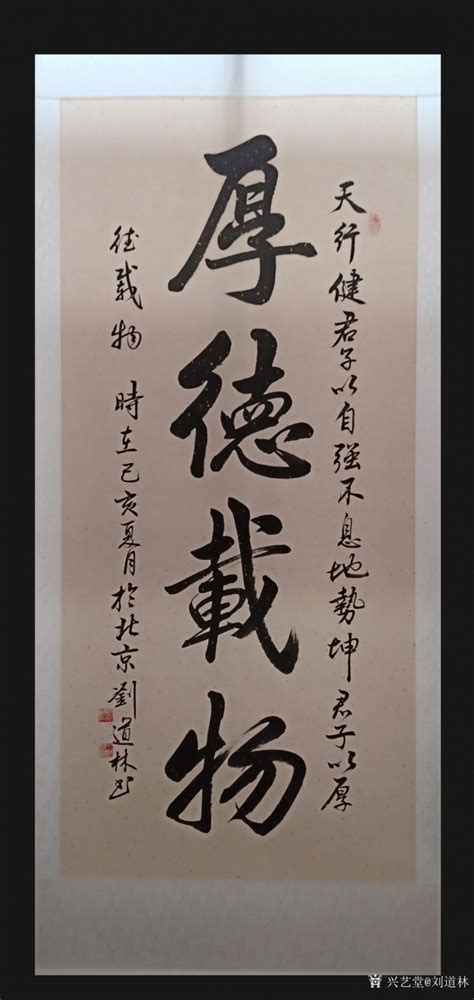 天行健君子以自强不息地勢坤君子以厚
厚德載物
德載物 時在己亥夏月於北京劉道林书
兴艺堂@刘道林